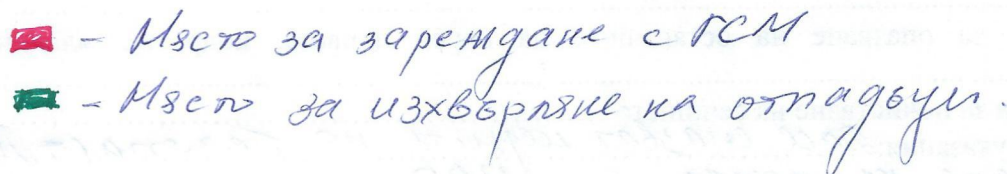 - Място за зареждане с ГСМ
- Място за изхвърляне на отпадъци.